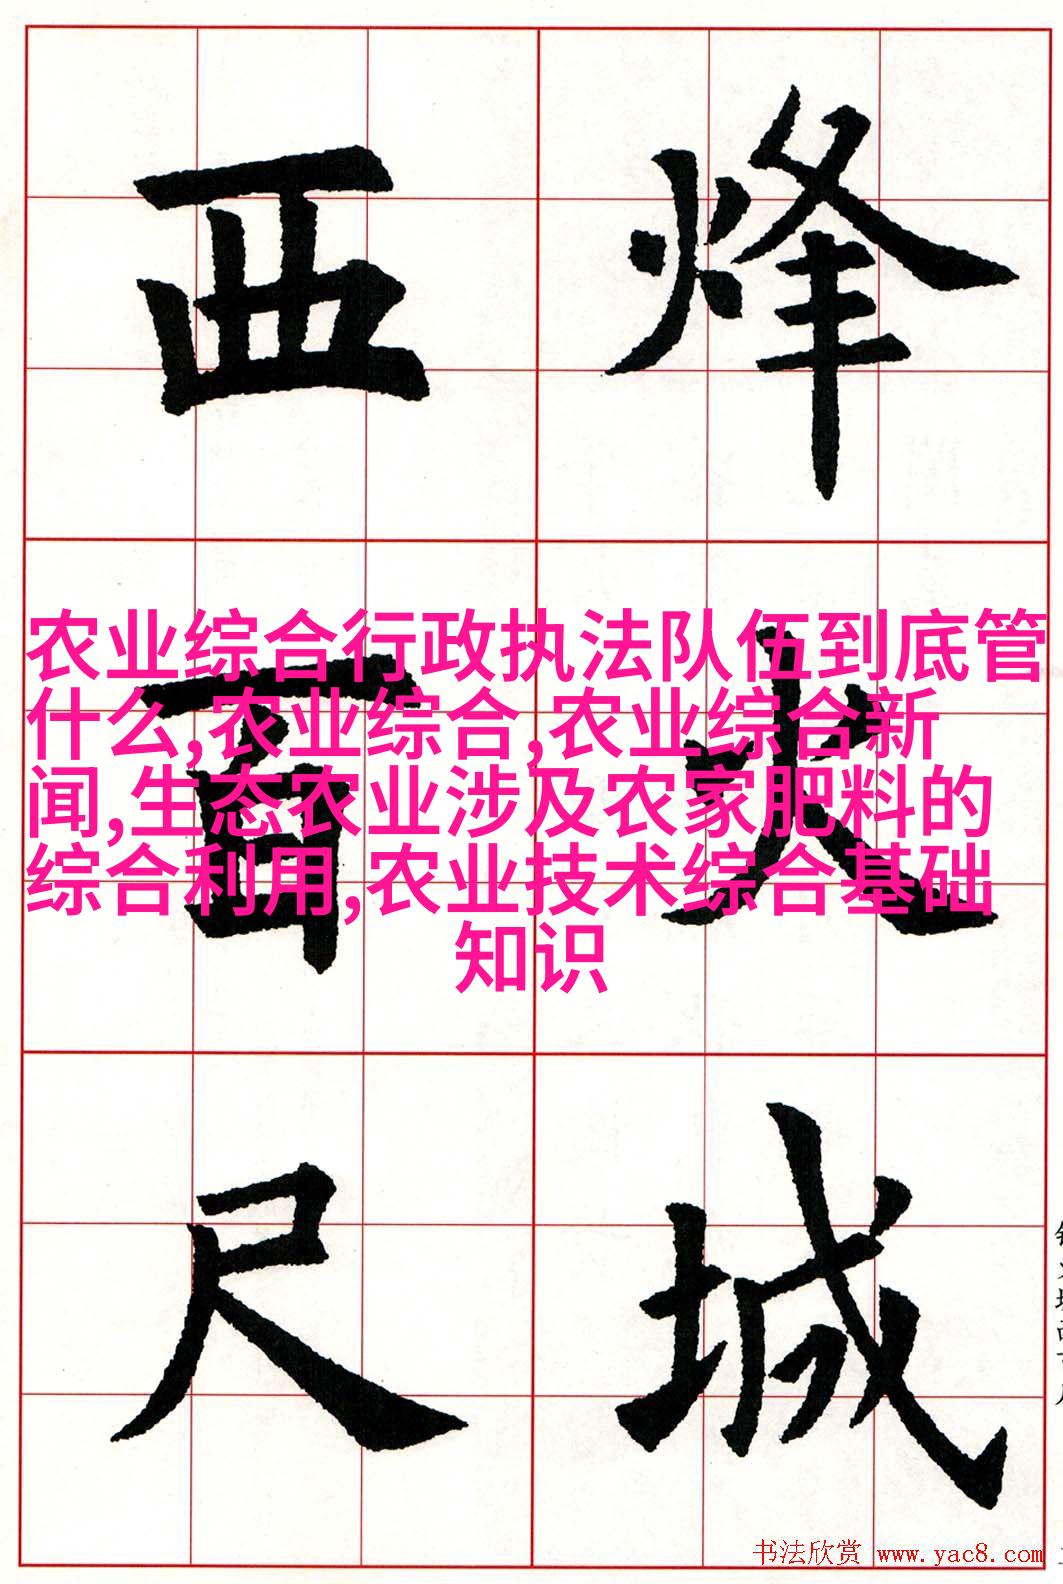 烽火城
西百尺
农业综合行政执法队伍到底管
什么,农业综合,农业综合新
闻,生态农业涉及农家肥料的
综合利用,农业技术综合基础
知识
书法欣赏 www.yac8.com